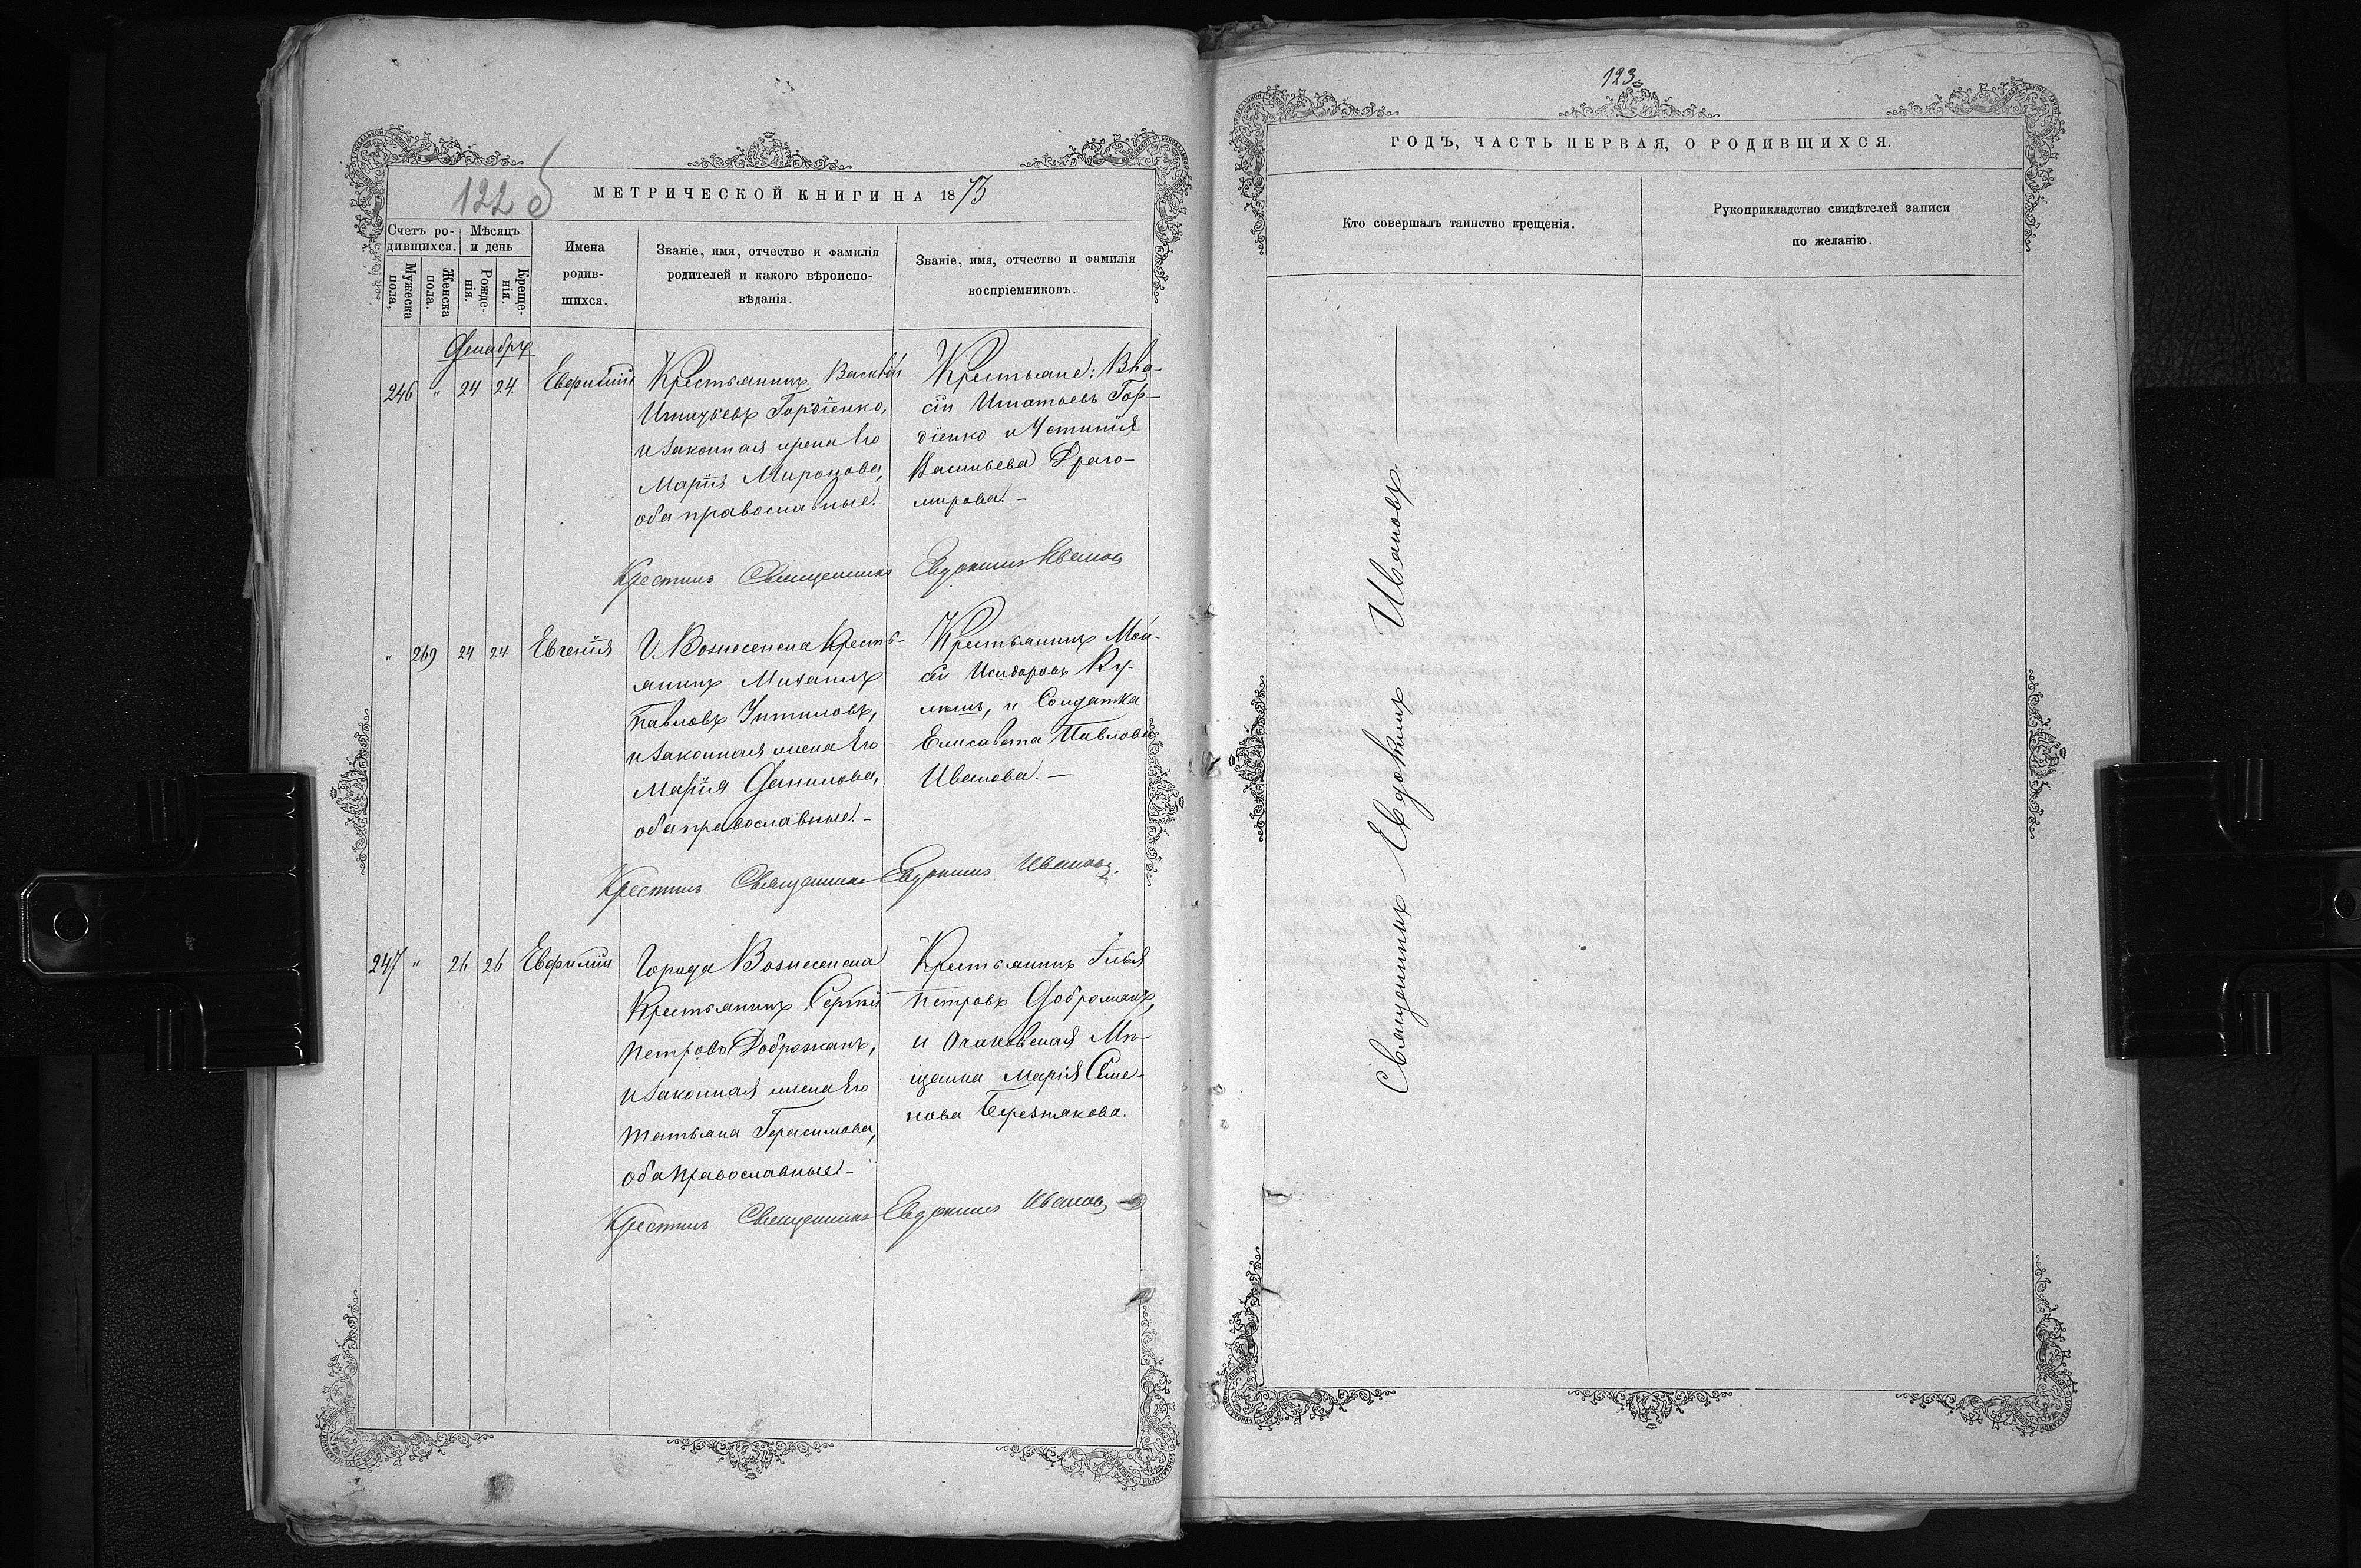 122 б
МЕТРИЧЕСКОЙ КНИГИ НА 1873
Счетъ ро-
дившихся.
Мѣсяцъ
и день
Мужеска
пола.
Женска
пола.
Рожде-
нія.
Креще-
нія.
Имена
родив-
шихся.
Званіе, имя, отчество и фамилія
родителей и какого вѣроиспо-
вѣданія.
Званіе, имя, отчество и фамилія
воспріемниковъ.
Декабрь
246 " 24 24
Крестьянинъ Василій
Игнатьевъ Гордіенко,
и законная жена его
Марія Миронова,
оба православные.
Крестьяне: Вла-
сій Игнатьевъ Гор-
діенко и Устинія
Васильева Драго-
мирова. -
Крестилъ Священникъ Евдокимъ Ивановъ
" 269 24 24 Евгенія
Г. Вознесенска Кресть-
янинъ Михаилъ
Павловъ
и законная жена его
Марія Данилова,
оба православные. -
Крестьянинъ Мой-
сей Исидоровъ Ку-
и Солдатка
Елисавета Павлова
Иванова. -
Крестилъ Священникъ Евдокимъ Ивановъ.
247 " 26 26 Евфимій
Города Вознесенска
Крестьянинъ Сергій
Петровъ Доброжанъ,
и законная жена его
Татьяна Герасимова,
оба православные -
Крестьянинъ Илья
Петровъ Доброжанъ,
и Очаковская Мѣ-
щанка Марія Семе-
нова
Крестилъ Священникъ Евдокимъ Ивановъ
123
ГОДЪ, ЧАСТЬ ПЕРВАЯ, О РОДИВШИХСЯ.
Кто совершалъ таинство крещенія.
Рукоприкладство свидѣтелей записи
по желанію.
Священникъ Евдокимъ Ивановъ